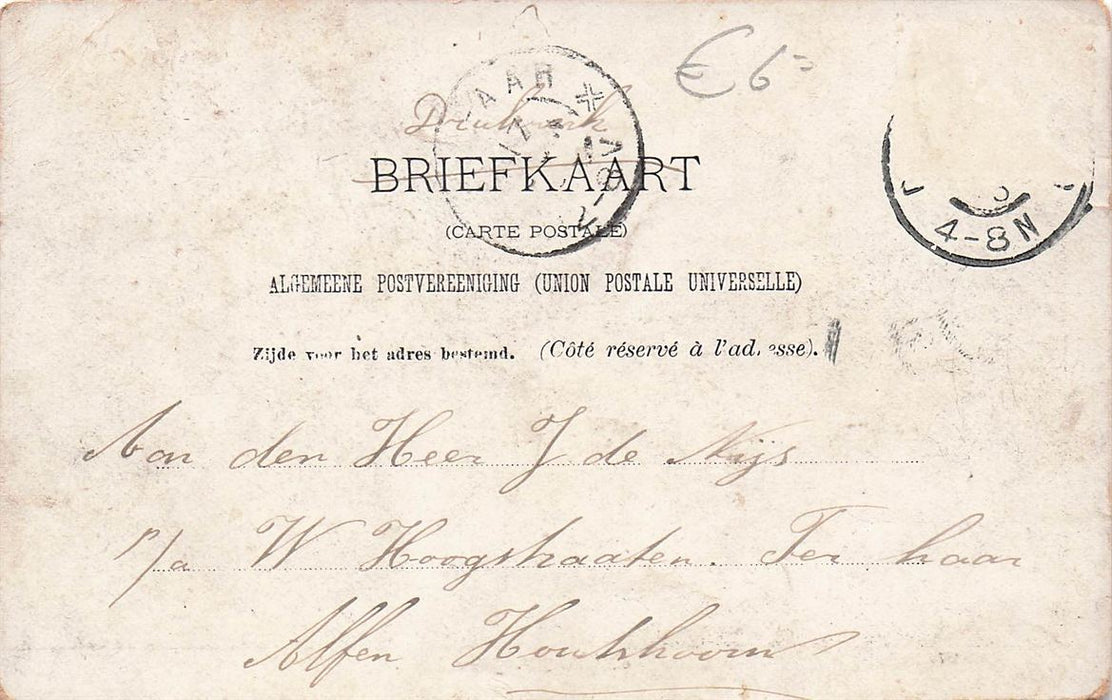 € 6
AAR
Drukwerk
BRIEFKAART
(CARTE POSTALE)
4-8N
ALGEMEENE POSTVEREENIGING (UNION POSTALE UNIVERSELLE)
Zijde voor het adres bestemd. (Côté réservé à l'adresse).
Aan den Heer J de Nijs
p/a W Hoogstraaten. Ter haar
Alfen